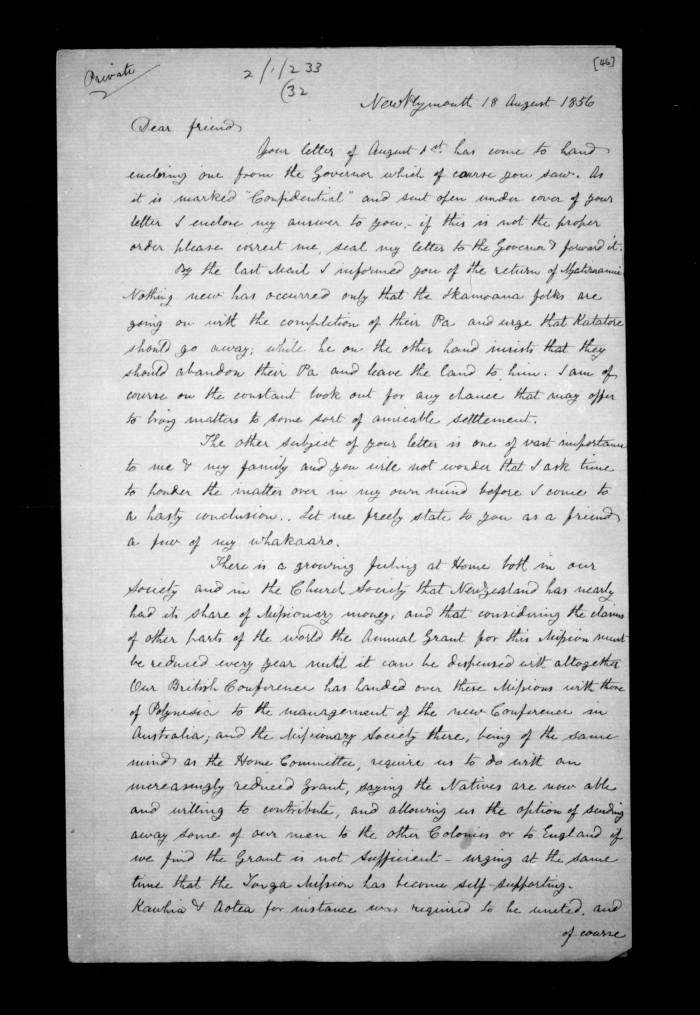 Private
2/1/2 33
(32
[46]
New Plymouth 18 August 1856
Dear friend
Your letter of August 1st. has come to hand
enclosing one from the Governor which of course you saw. As
it is marked "Confidential" and sent open under cover of your
letter I enclose my answer to you, - if this is not the proper
order please correct me, seal my letter to the Governor & forward it.
By the last Mail I informed you of the return of Ngatiruanui
Nothing new has occurred only that the Ikamoana folks are
going on with the completion of their Pa and urge that Katatore
should go away; while he on the other hand insists that they
should abandon their Pa and leave the land to him. I am of
course on the constant look out for any chance that may offer
to bring matters to some sort of amicable settlement.
The other subject of your letter is one of vast importance
to me & my family and you will not wonder that I ask time
to ponder the matter over in my own mind before I come to
a hasty conclusion.. Let me freely state to you as a friend
a few of my whakaaro.
There is a growing feeling at Home both in our
Society and in the Church Society that New Zealand has nearly
had its share of Missionary money, and that considering the claims
of other parts of the world the Annual Grant for this Mission must
be reduced every year until it can be dispensed with altogether
Our British Conference has handed over these Missions with those
of Polynesia to the management of the new Conference in
Australia; and the Missionary Society there, being of the same
mind as the Home Committee, require us to do with an
increasingly reduced Grant, saying the Natives are now able
and willing to contribute, and allowing us the option of sending
away some of our men to the other Colonies or to England if
we find the Grant is not sufficient - urging at the same
time that the Tonga Mission has become self-supporting.
Kawhia & Aotea for instance was required to be united, and
of course